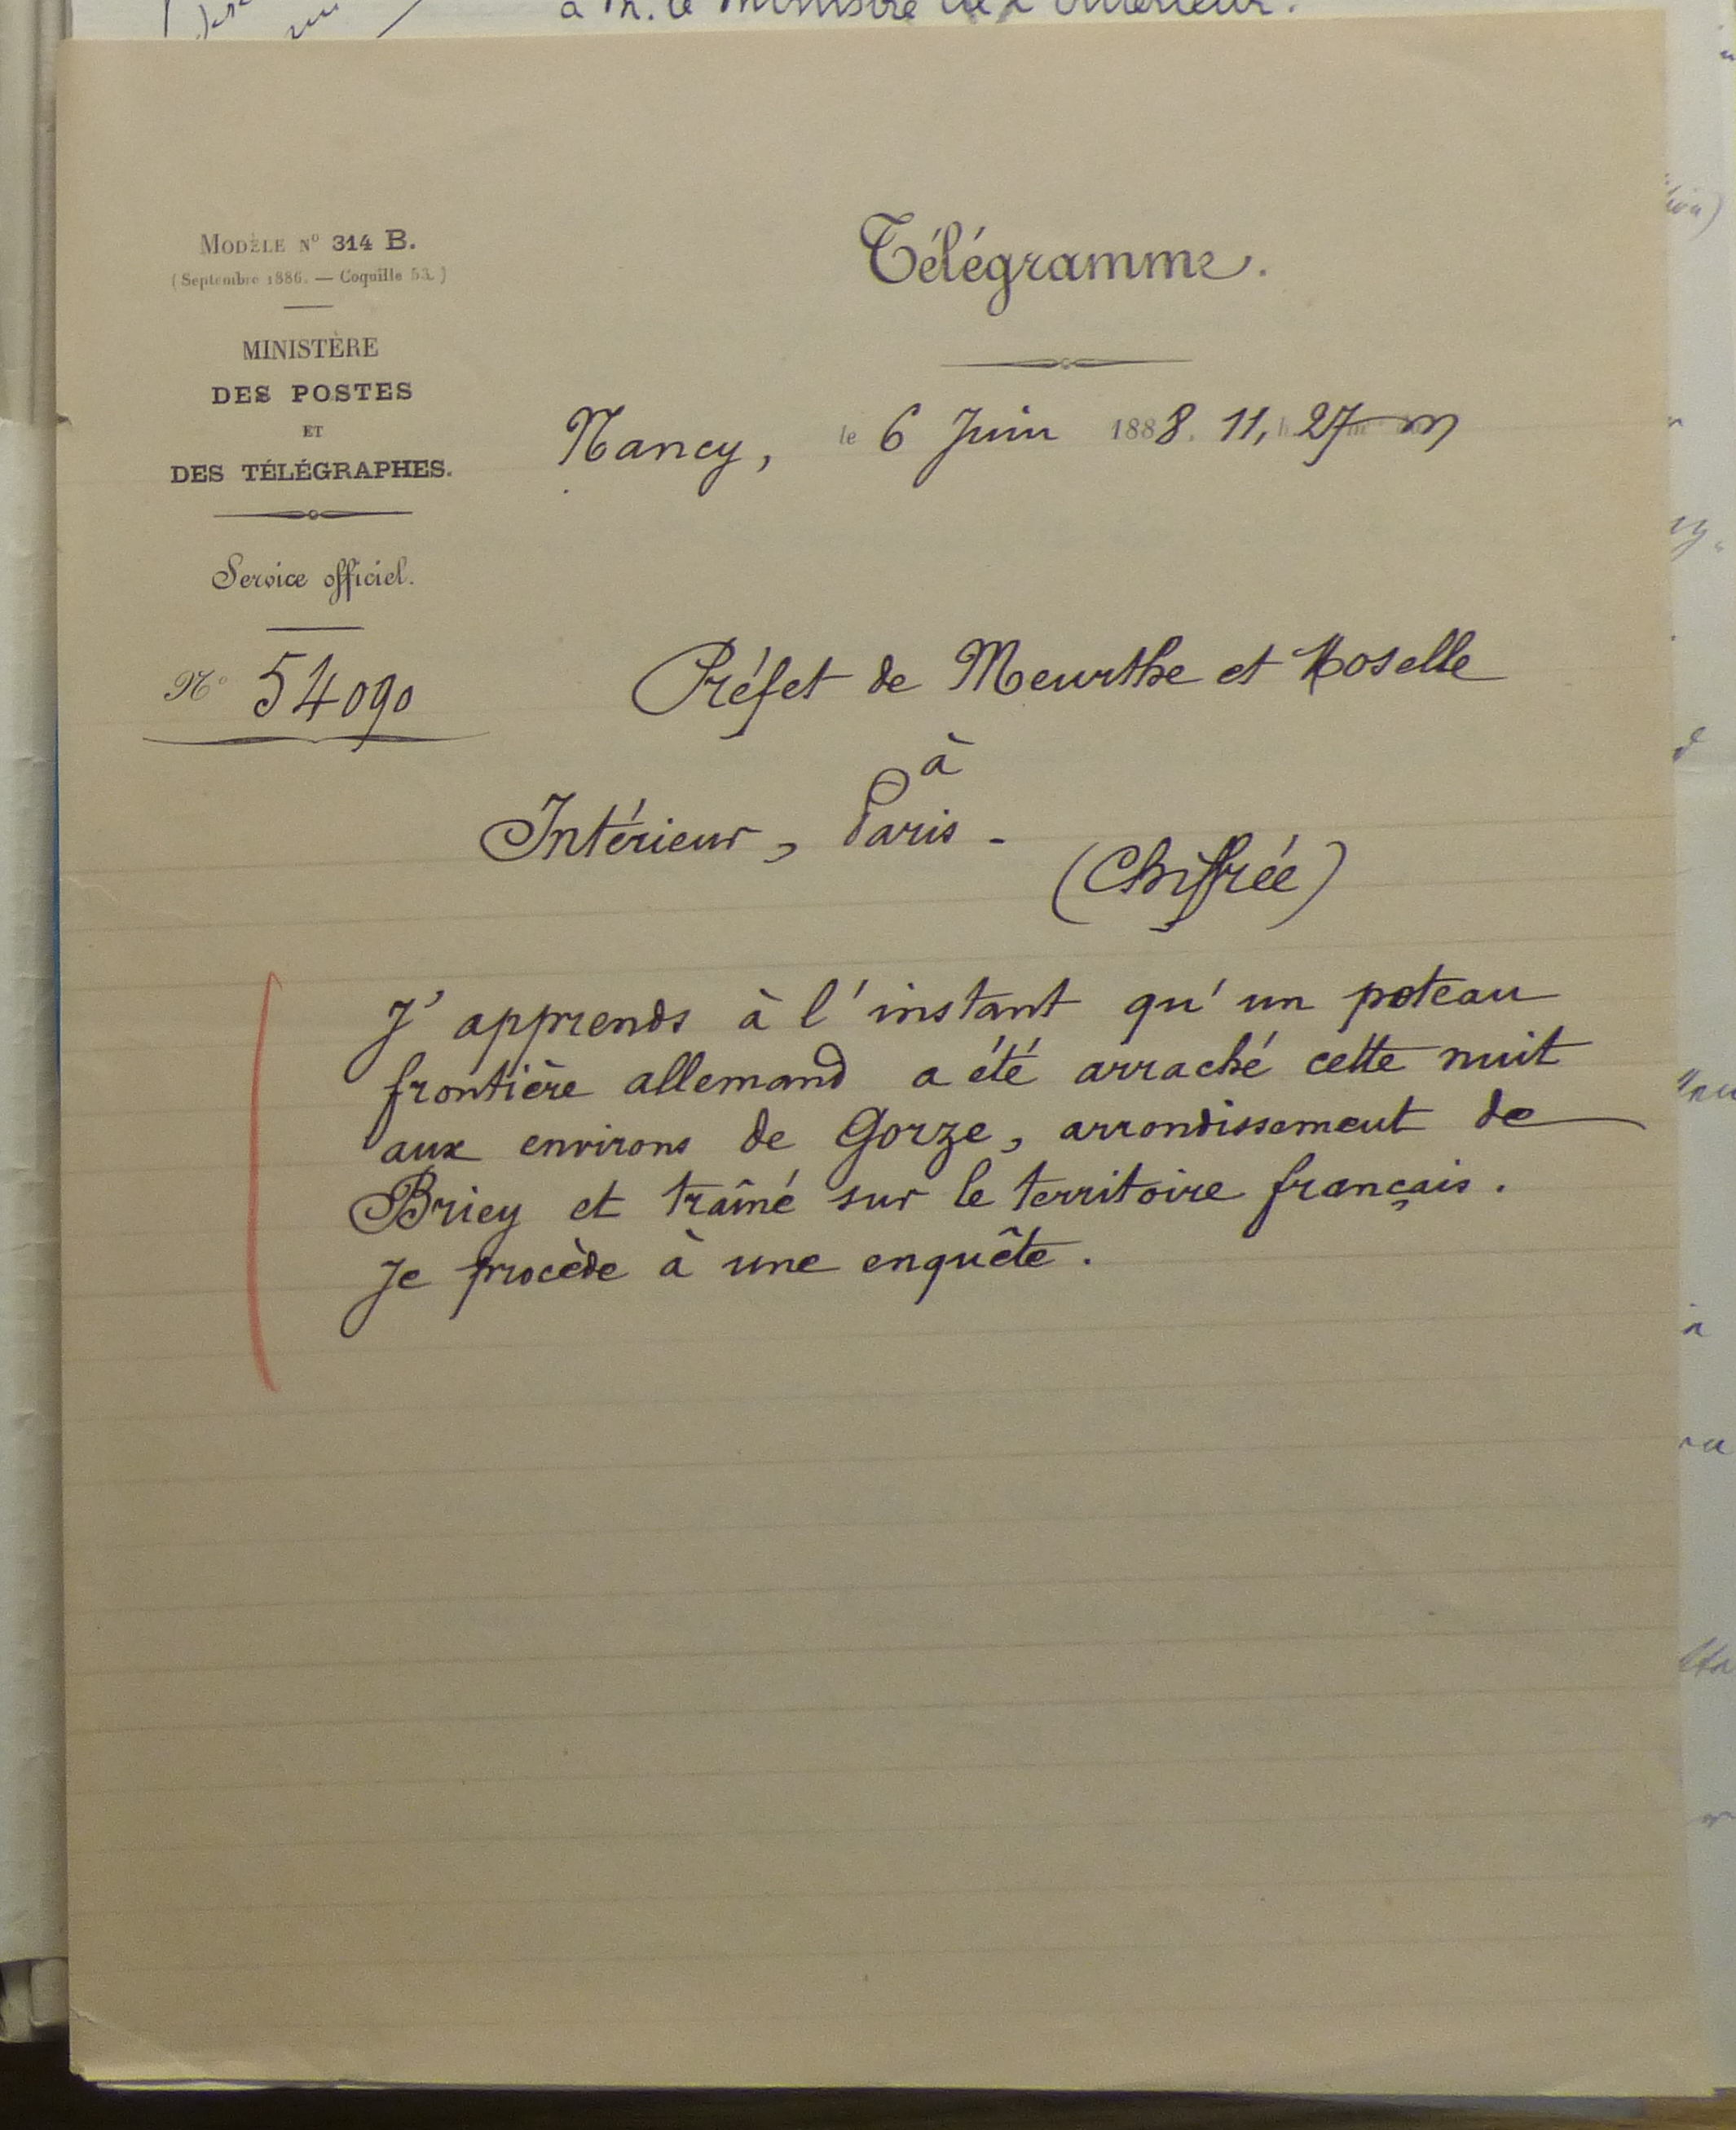 à M. le Ministre de l'Intérieur.
MODÈLE N° 314 B.
(Septembre 1886. — Coquille 53.)
MINISTÈRE
DES POSTES
ET
DES TÉLÉGRAPHES.
Service officiel.
N° 54090
Télégramme.
Nancy, le 6 Juin 1888. 11, 27 m
Préfet de Meurthe et Moselle
à
Intérieur, Paris -
(Chiffrée)
J'apprends à l'instant qu'un poteau
frontière allemand a été arraché cette nuit
aux environs de Gorze, arrondissement de
Briey et traîné sur le territoire français.
Je procède à une enquête.